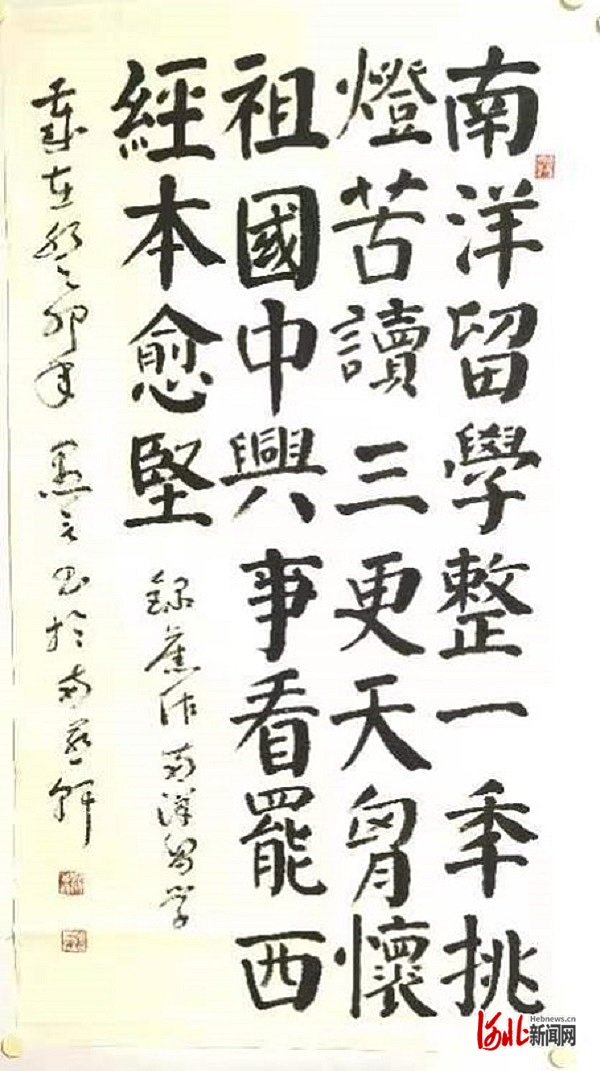 南洋留學整一季挑
燈苦讀三更天胷懷
祖國中興事看罷西
經本愈堅
錄舊作南洋留学
歲在癸卯年 书於南
Hebnews.cn
河北新闻网